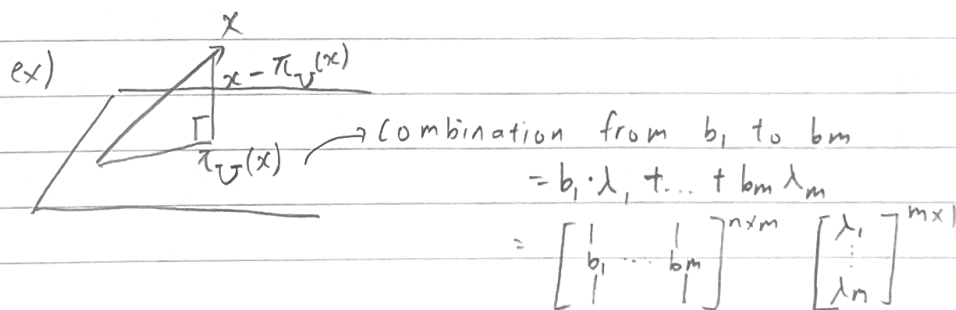 x
ex)
x - π_U(x)
π_U(x) → combination from b₁ to bm
= b₁·λ₁ + ... + bm λm
= [b₁ ... bm]^{n×m} [λ₁ ⋮ λm]^{m×1}